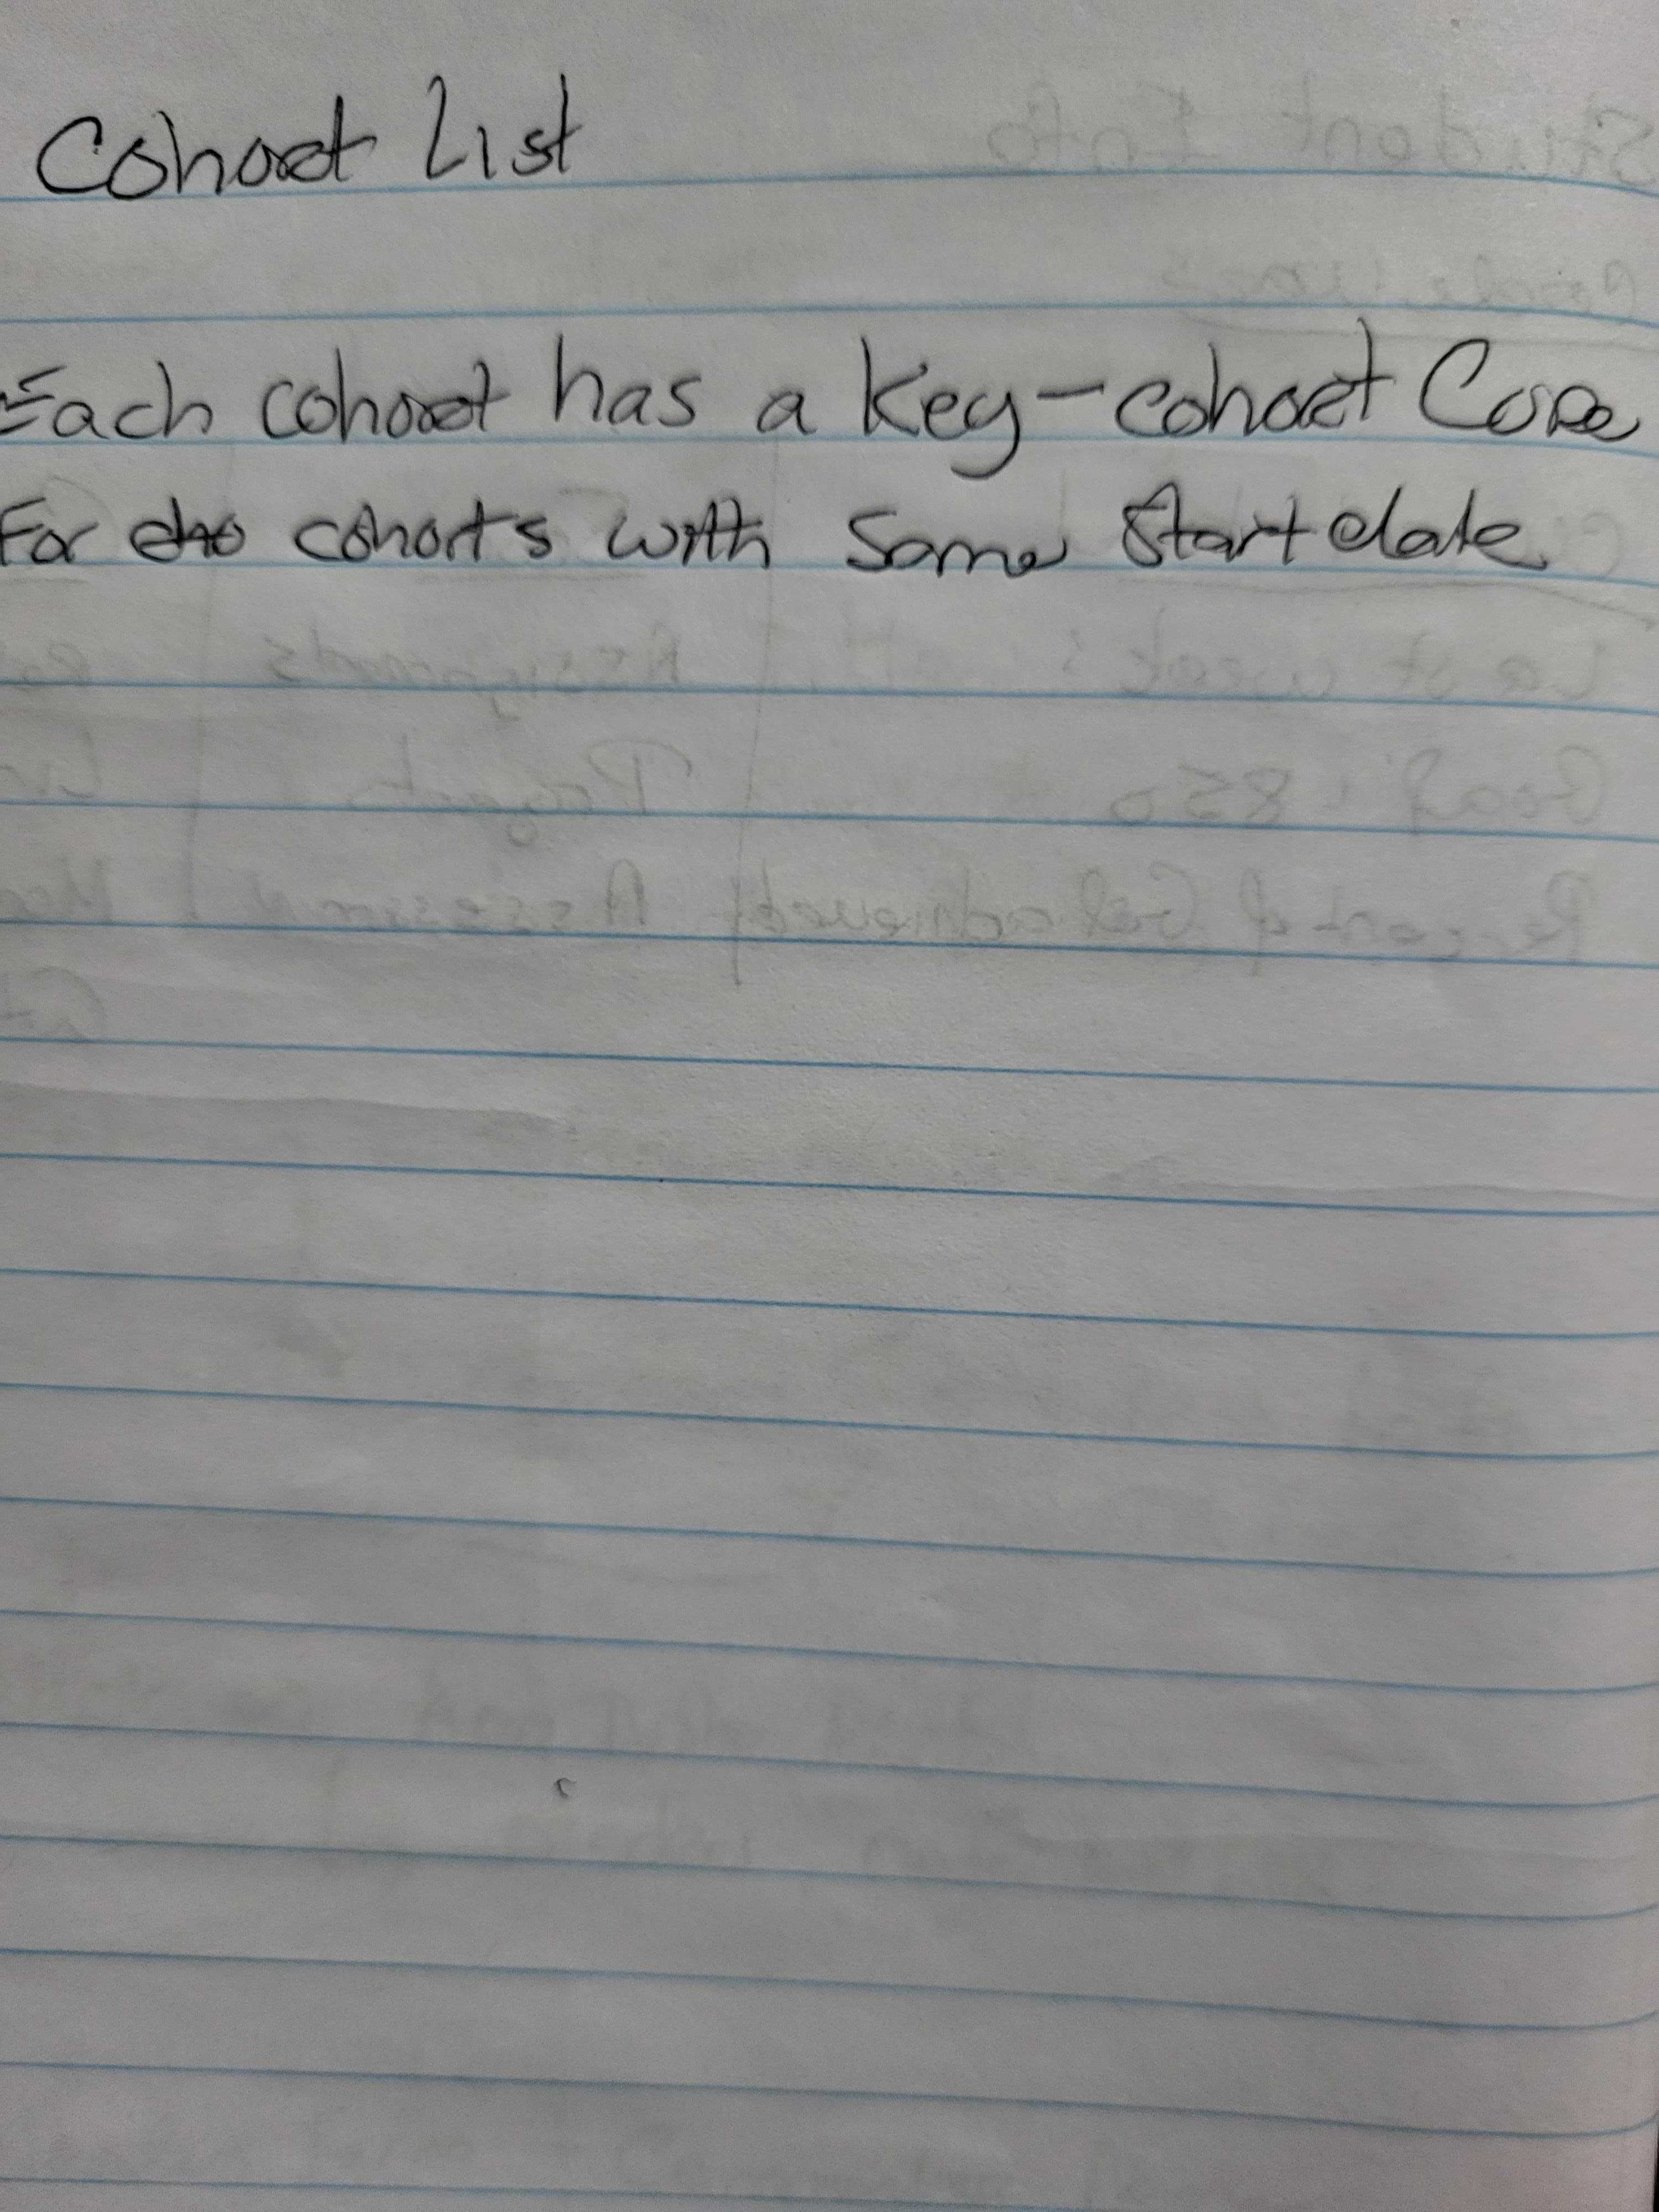 Cohort List
Each cohort has a Key-cohort Code
For cohorts with same Start date